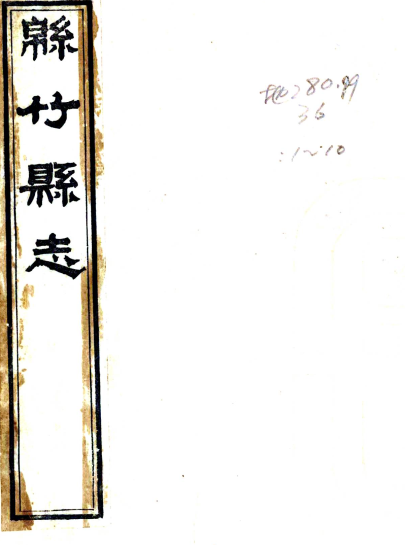 緜竹縣志
地280.99
36
:1~10